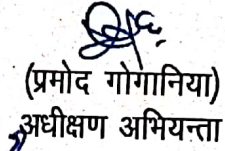 (प्रमोद गोगानिया)
अधीक्षण अभियन्ता